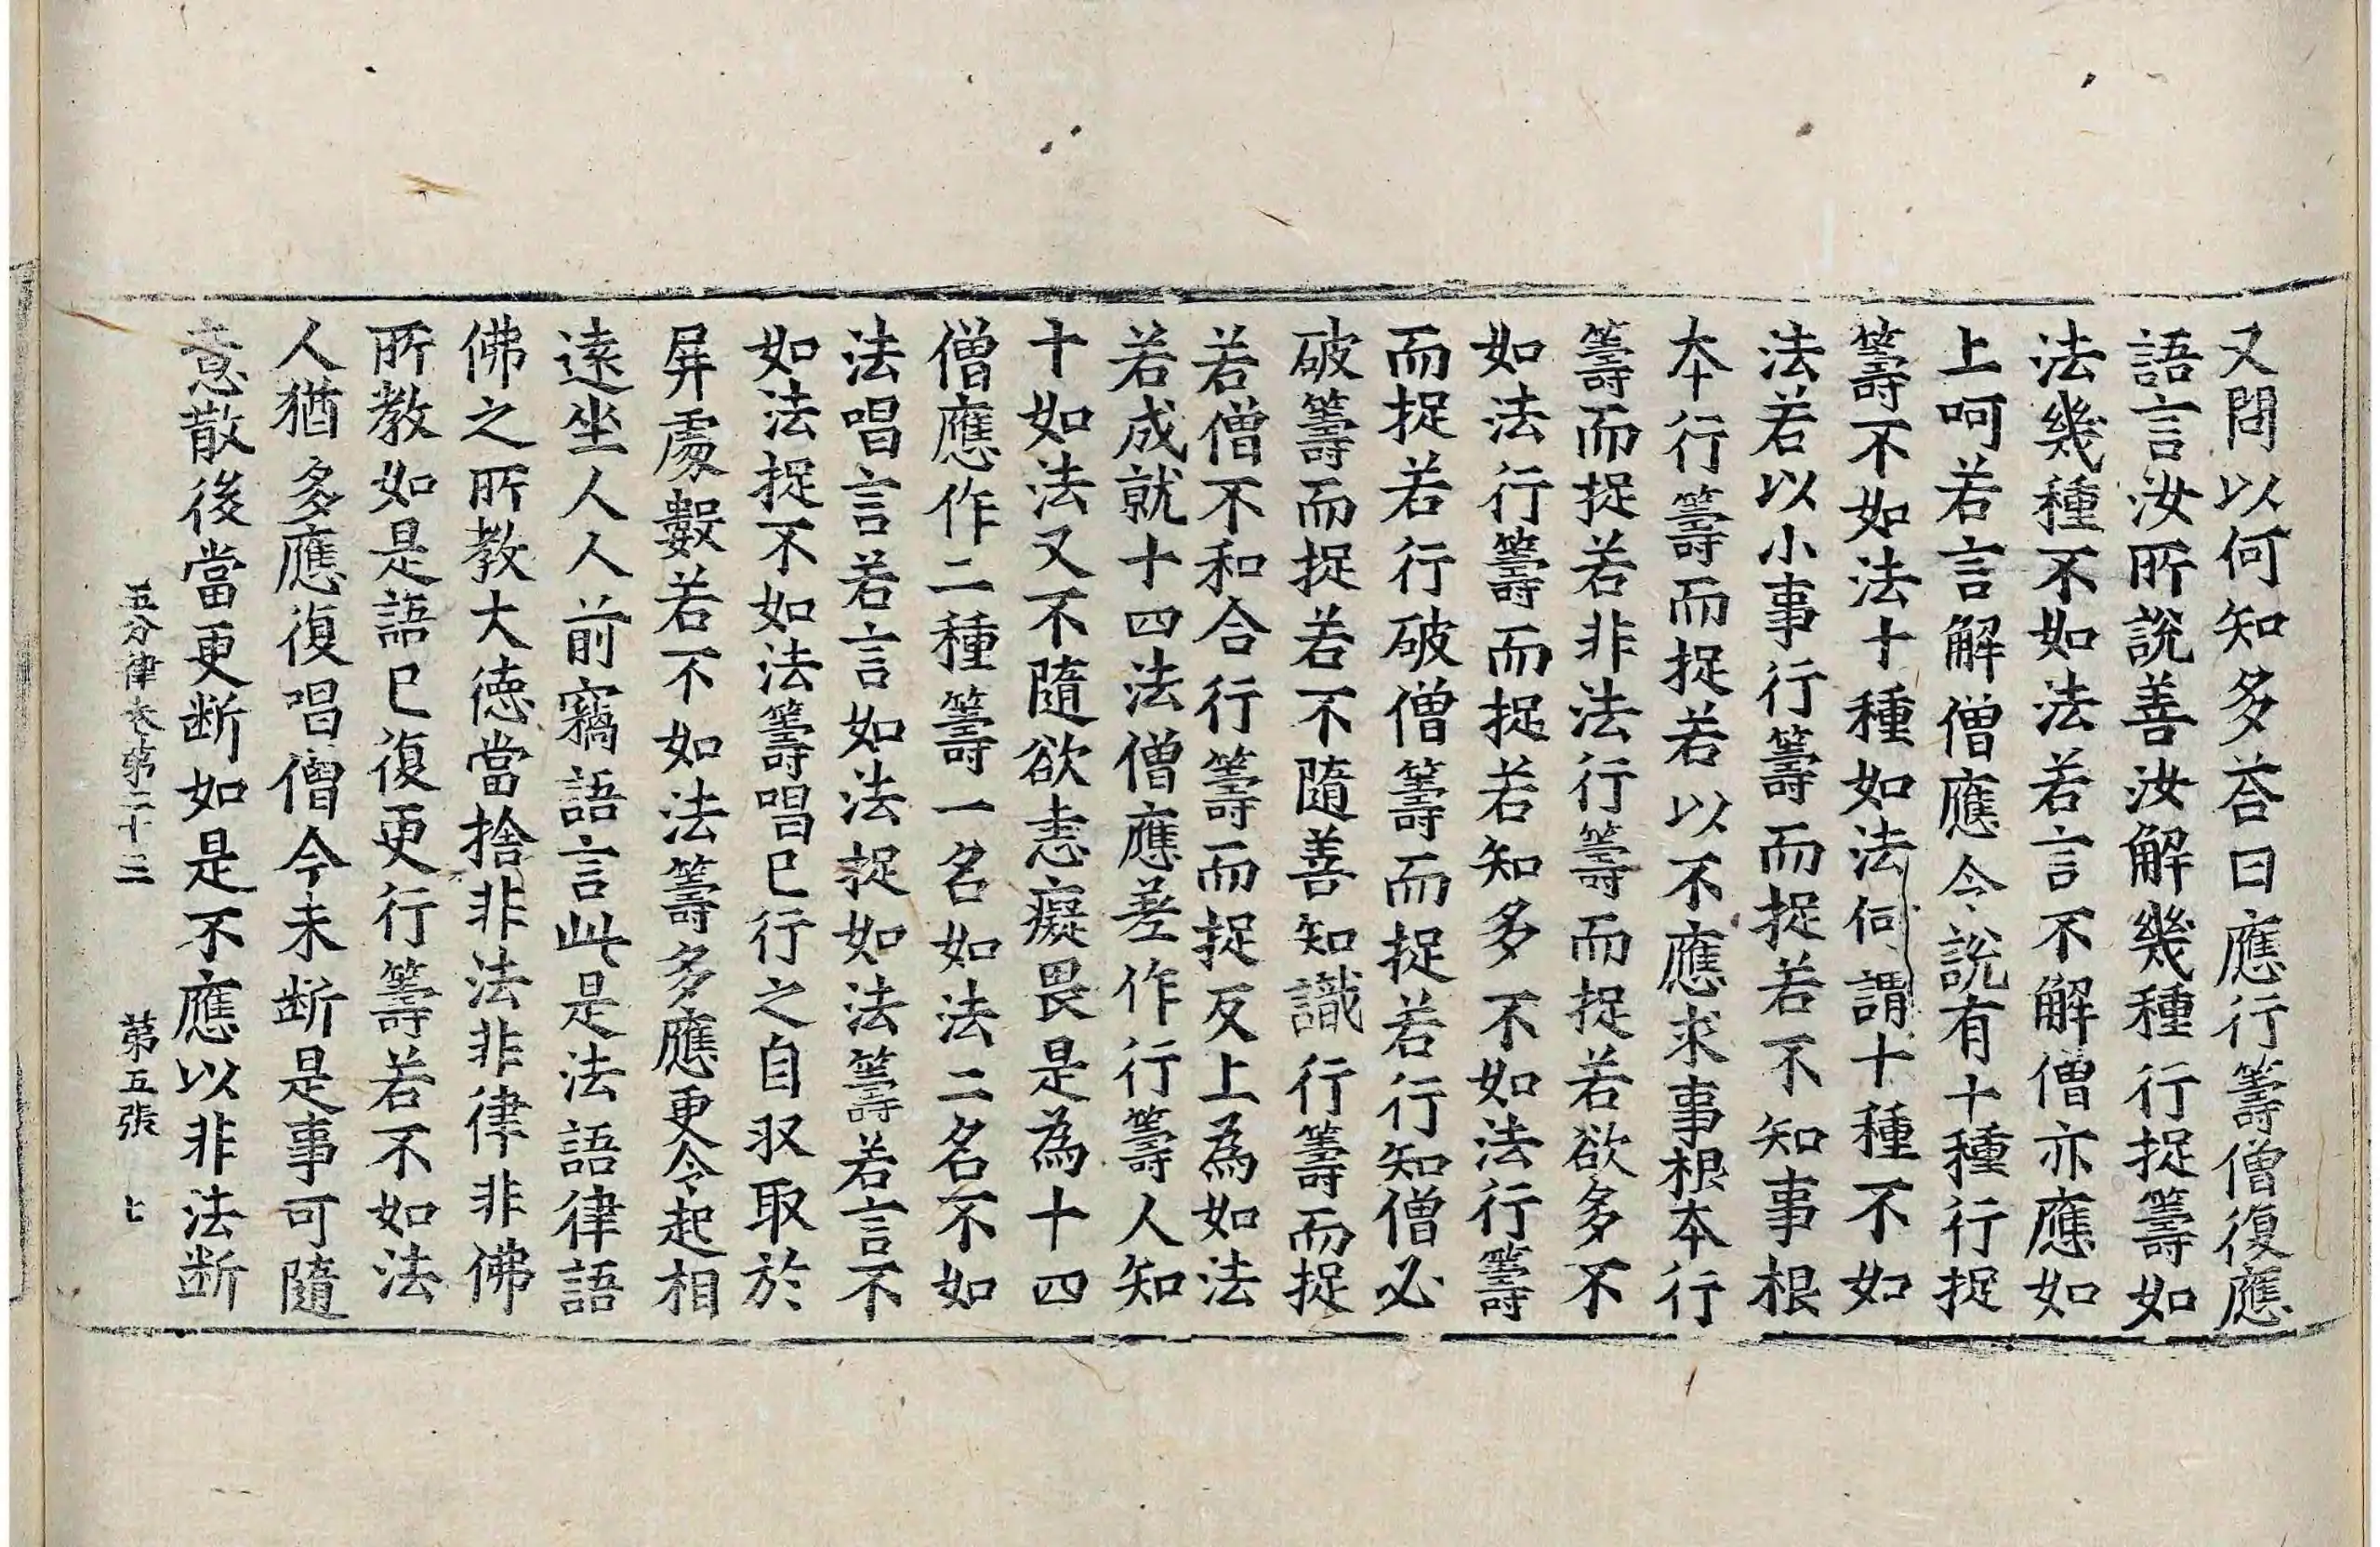 又問以何知多荅曰應行籌僧復應
語言汝所說善汝解幾種行捉籌如
法幾種不如法若言不解僧亦應如
上呵若言解僧應令說有十種行捉
籌不如法十種如法何謂十種不如
法若以小事行籌而捉若不知事根
本行籌而捉若以不應求事根本行
籌而捉若非法行籌而捉若欲多不
如法行籌而捉若知多不如法行籌
而捉若行破僧籌而捉若行知僧必
破籌而捉若不隨善知識行籌而捉
若僧不和合行籌而捉反上為如法
若成就十四法僧應差作行籌人知
十如法又不隨欲恚癡畏是為十四
僧應作二種籌一名如法二名不如
法唱言若言如法捉如法籌若言不
如法捉不如法籌唱已行之自収取於
屏處數若不如法籌多應更令起相
遠坐人人前竊語言此是法語律語
佛之所教大德當捨非法非律非佛
所教如是語已復更行籌若不如法
人猶多應復唱僧今未断是事可隨
意散後當更断如是不應以非法断
五分律卷第二十三 第五張 七